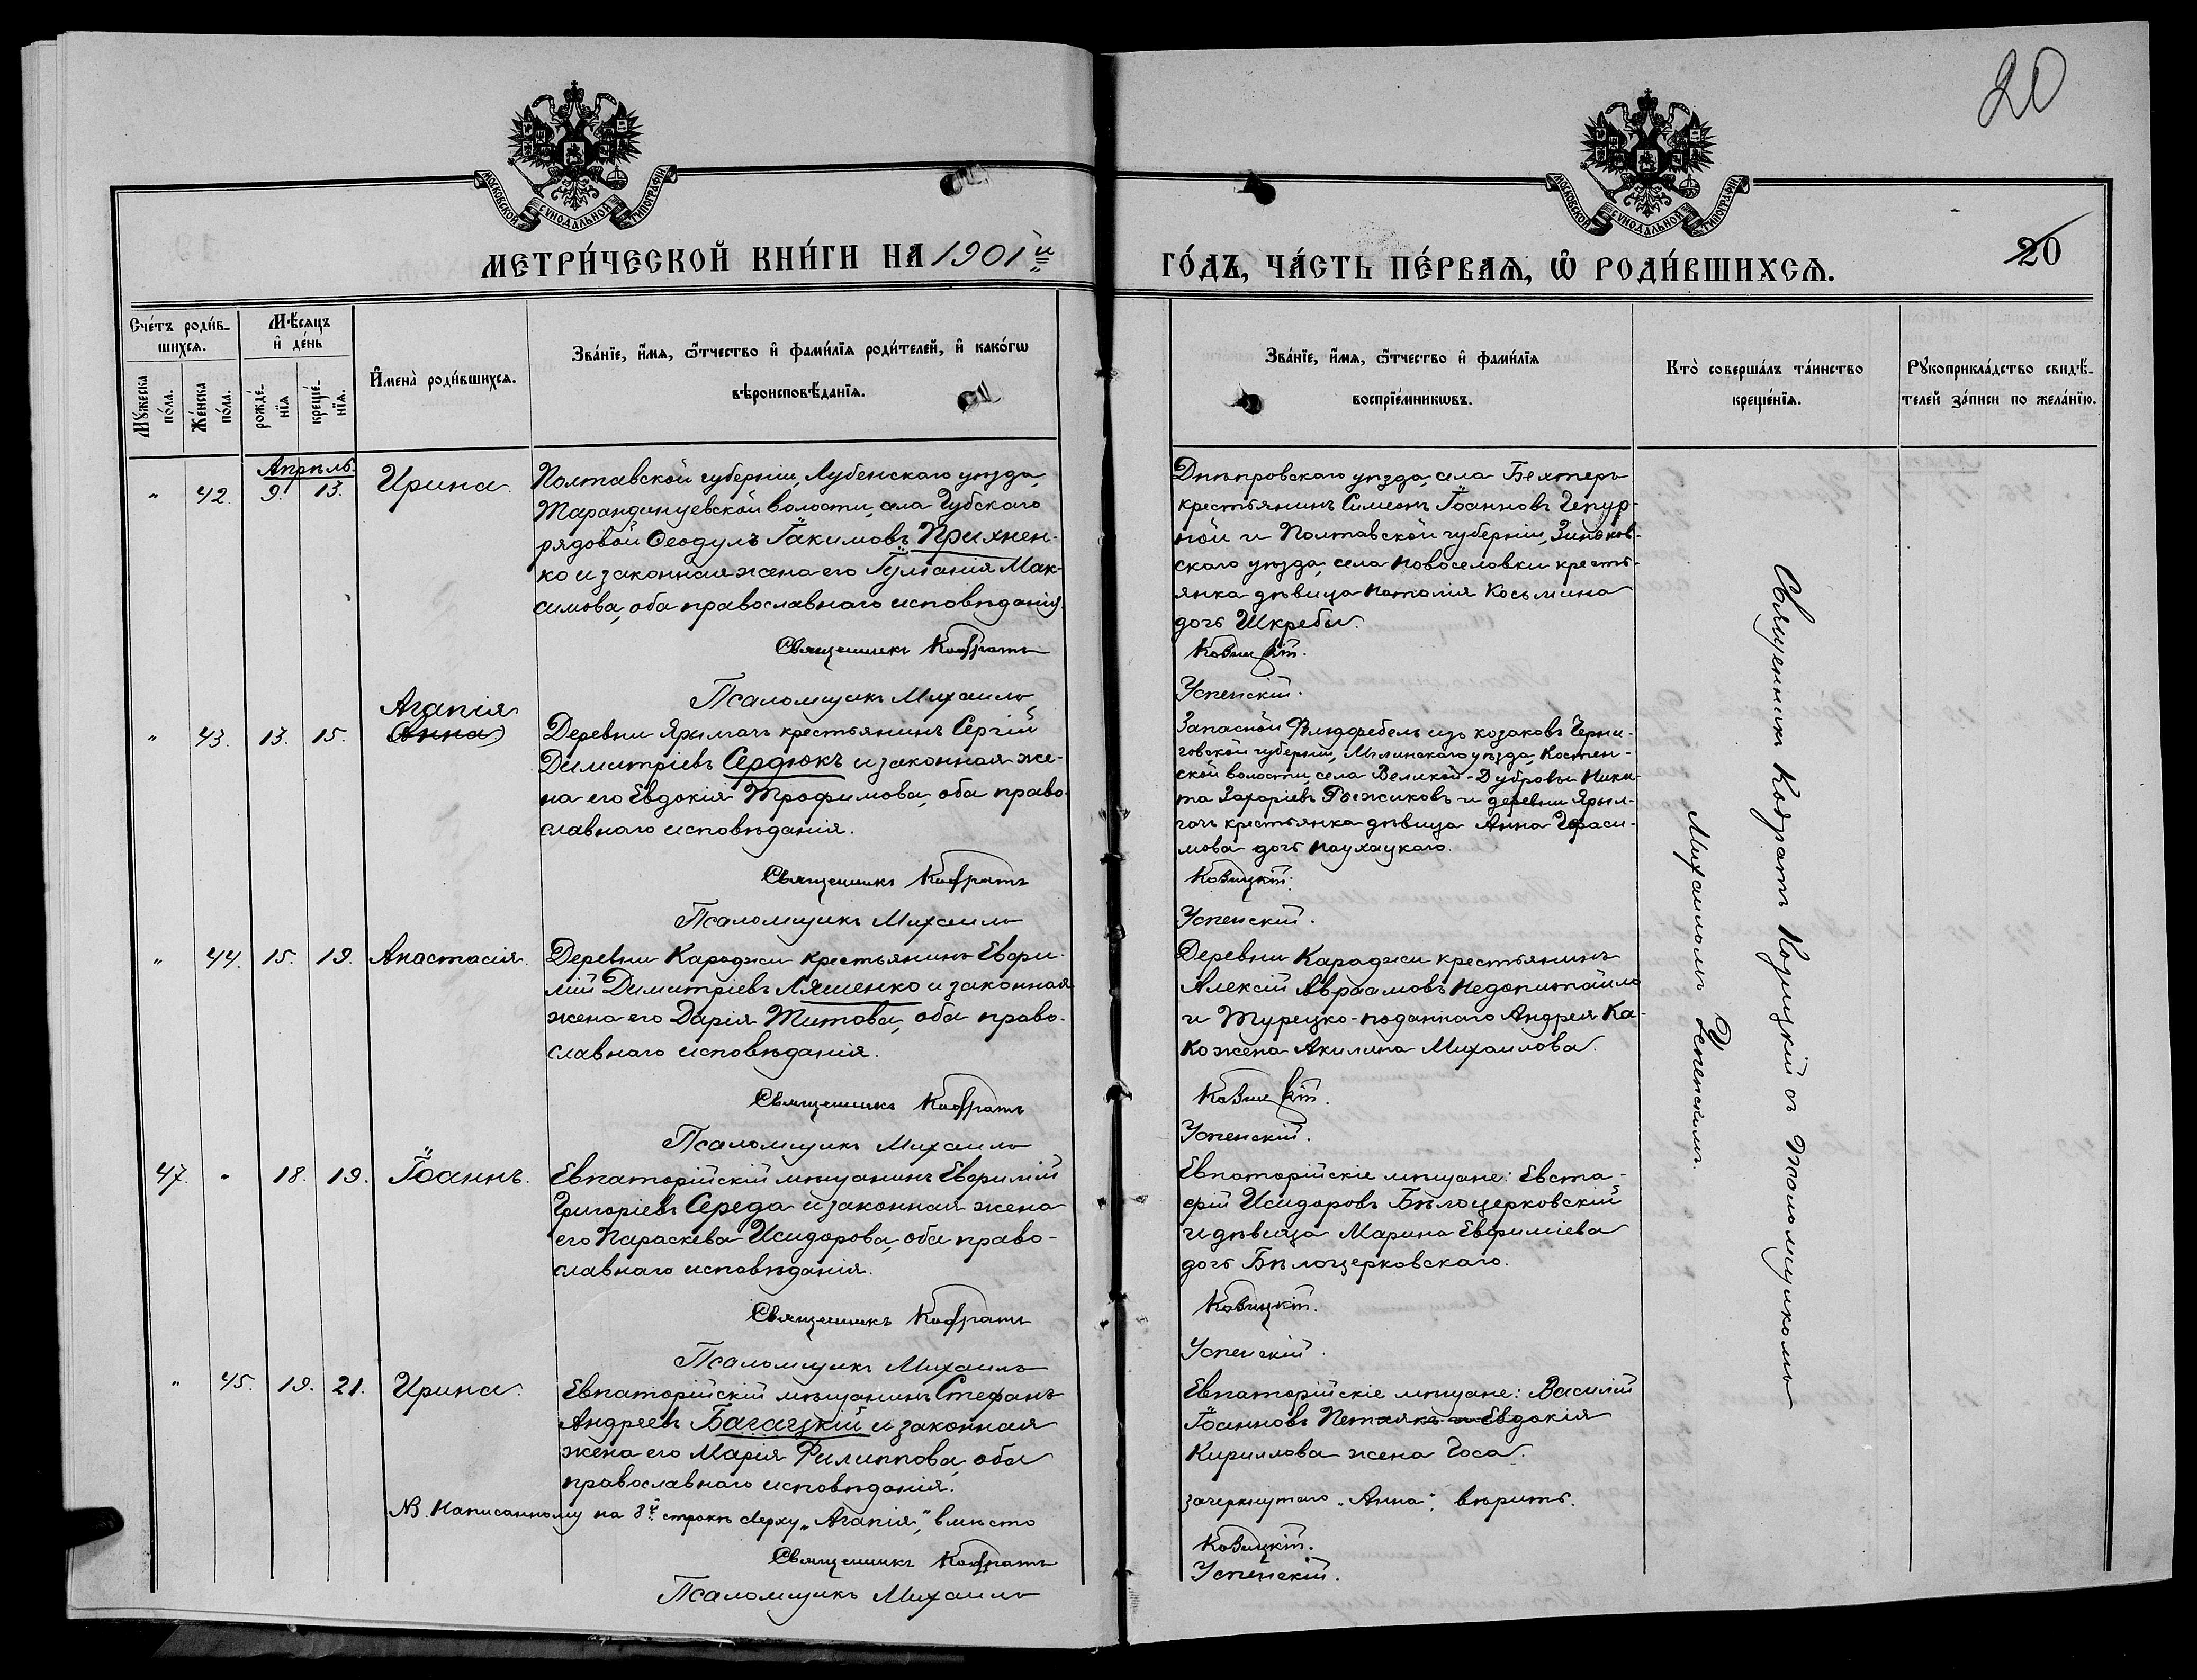 20
МОСКОВСКОЙ СѴНОДАЛЬНОЙ ТИПОГРАФІИ
МОСКОВСКОЙ СѴНОДАЛЬНОЙ ТИПОГРАФІИ
МЕТРИ́ЧЕСКОЙ КНИ́ГИ НА 1901й
ГО́ДЪ, ЧА́СТЬ ПЕ́РВАѦ, Ѽ РОДИ́ВШИХСѦ.
20
Сче́тъ роди́в-
шихсѧ.
Мѣ́сѧцъ
и҆ де́нь
Мꙋ́жеска
по́ла.
Же́нска
по́ла.
рожде́-
нїѧ
креще́-
нїѧ.
И҆мена̀ роди́вшихсѧ.
Зва́нїе, и҆́мѧ, ѻ҆́тчество и҆ фами́лїѧ роди́телей, и҆ како́гѡ
вѣроисповѣ́данїѧ.
Зва́нїе, и҆́мѧ, ѻ҆́тчество и҆ фами́лїѧ
воспрїе́мникѡвъ.
Кто̀ соверша́лъ та́инство
креще́нїѧ.
Рꙋкоприкла́дство свидѣ́-
телей за́писи по жела́нїю.
Апрѣль.
„ 42. 9. 13. Ирина.
Полтавской губерніи, Лубенскаго уѣзда,
Тарандинцевской волости, села Губскаго
рядовой Ѳеодулъ Іакимовъ Прихнен-
ко и законная жена его Іуліанія Мак-
симова, оба православнаго исповѣданія.
Священникъ Кодратъ
Псаломщикъ Михаилъ
Днѣпровскаго уѣзда, села Бехтеръ
крестьянинъ Симеонъ Іоанновъ Чепур-
ной и Полтавской губерніи, Зиньков-
скаго уѣзда, села Новоселовки кресть-
янка дѣвица Наталія Косьмина
дочь Шкребы.
Козицкій.
Успенскій.
„ 43. 13. 15. Агапія
(Анна)
Деревни Ярылгачъ крестьянинъ Сергій
Димитріевъ Сердюкъ и законная же-
на его Евдокія Трофимова, оба право-
славнаго исповѣданія.
Священникъ Кодратъ
Псаломщикъ Михаилъ
Запасной Фельдфебель изъ козаковъ Черни-
говской губерніи, Мглинскаго уѣзда, Костен-
ской волости, села Великой-Дубровы Ники-
та Захаріевъ Рыжиковъ и деревни Ярыл-
гачъ крестьянка дѣвица Анна Гераси-
мова дочь Паухацкаго.
Козицкій.
Успенскій.
„ 44. 15. 19. Анастасія.
Деревни Караджи крестьянинъ Евфи-
мій Димитріевъ Ляшенко и законная
жена его Дарія Титова, оба право-
славнаго исповѣданія.
Священникъ Кодратъ
Псаломщикъ Михаилъ
Деревни Караджи крестьянинъ
Алексій Авраамовъ Недопитайло
и Турецко-поданнаго Андрея Ка-
ко жена Акилина Михаилова.
Козицкій.
Успенскій.
47. „ 18. 19. Іоаннъ.
Евпаторійскій мѣщанинъ Евфимій
Григоріевъ Середа и законная жена
его Параскева Исидорова, оба право-
славнаго исповѣданія.
Священникъ Кодратъ
Псаломщикъ Михаилъ
Евпаторійскіе мѣщане: Евста-
фій Исидоровъ Бѣлоцерковскій
и дѣвица Марина Евфиміева
дочь Бѣлоцерковскаго.
Козицкій.
Успенскій.
„ 45. 19. 21. Ирина.
Евпаторійскій мѣщанинъ Стефанъ
Андреевъ Багацкій и законная
жена его Марія Филиппова, оба
православнаго исповѣданія.
Евпаторійскіе мѣщане: Василій
Іоанновъ Петлякъ и Евдокія
Кириллова жена Госа.
NB. Написанному на 8й строкѣ сверху „Агапія“, вмѣсто
зачеркнутаго „Анна“, вѣрить.
Священникъ Кодратъ
Козицкій.
Псаломщикъ Михаилъ
Успенскій.
Священникъ Кодратъ Козицкій съ псаломщикомъ
Михаиломъ Успенскимъ.